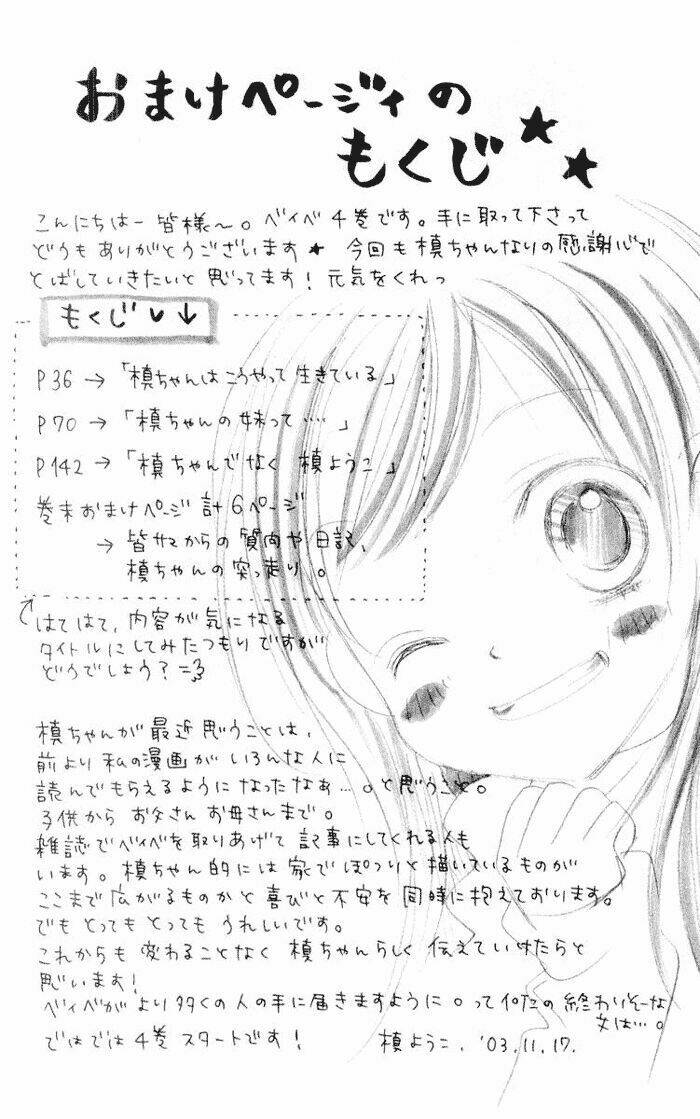 おまけページィの
もくじ★★
こんにちはー皆様〜。ベイベ4巻です。手に取って下さって
どうもありがとうございます★ 今回も槙ちゃんなりの感謝心で
とばしていきたいと思ってます!元気をくれっ
もくじ♥↓
P36→「槙ちゃんはこうやって生きている」
P70→「槙ちゃんの妹って‥‥」
P142→「槙ちゃんでなく 槙ようこ」
巻末おまけページ 計6ページ
→皆サマからの質問や日記、
槙ちゃんの突っ走り。
はてはて、内容が気になる
タイトルにしてみたつもりですが
どうでしょう?
槙ちゃんが最近思うことは、
前より私の漫画がいろんな人に
読んでもらえるようになったなぁ…。と思うこと。
子供からお父さんお母さんまで。
雑誌でベイベを取りあげて記事にしてくれる人も
います。槙ちゃん的には家でぽつりと描いているものが
ここまで広がるものかと喜びと不安を同時に抱えております。
でもとってもとってもうれしいです。
これからも変わることなく槙ちゃんらしく伝えていけたらと
思います!
ベイベがより多くの人の手に届きますように。って10代の終わりそーな
女は…。
ではでは4巻スタートです! 槙ようこ. '03.11.17.